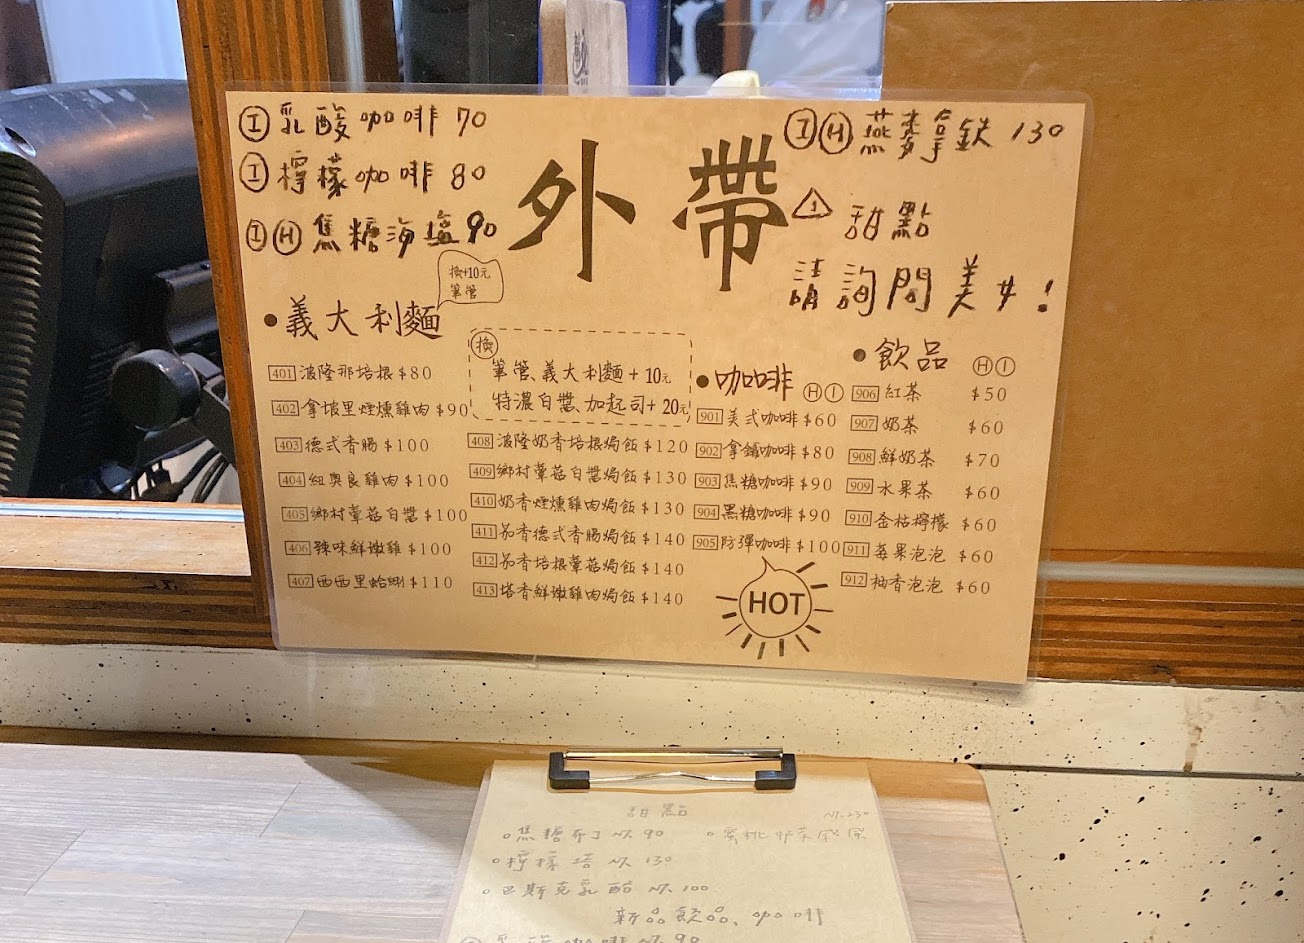 Ⓘ乳酸咖啡 70
Ⓘ檸檬咖啡 80
ⒾⒽ焦糖海鹽 90
外帶
ⒾⒽ燕麥拿鉄 130
甜點
請詢問美女!
換+10元
筆管
•義大利麵
401 波隆那培根 $80
402 拿坡里煙燻雞肉 $90
403 德式香腸 $100
404 紐奧良雞肉 $100
405 鄉村蕈菇白醬 $100
406 辣味鮮嫩雞 $100
407 西西里蛤蜊 $110
換
筆管、義大利麵+10元
特濃白醬、加起司+20元
408 波隆奶香培根焗飯 $120
409 鄉村蕈菇白醬焗飯 $130
410 奶香煙燻雞肉焗飯 $130
411 茄香德式香腸焗飯 $140
412 茄香培根蕈菇焗飯 $140
413 塔香鮮嫩雞肉焗飯 $140
•咖啡 ⒽⒾ
901 美式咖啡 $60
902 拿鐵咖啡 $80
903 焦糖咖啡 $90
904 黑糖咖啡 $90
905 防彈咖啡 $100
HOT
•飲品 ⒽⒾ
906 紅茶 $50
907 奶茶 $60
908 鮮奶茶 $70
909 水果茶 $60
910 金桔檸檬 $60
911 莓果泡泡 $60
912 柚香泡泡 $60
甜點
○焦糖布丁 NT. 90
NT. 230
○檸檬塔 NT. 130
○巴斯克乳酪 NT. 100
新品飲品、咖啡
咖啡 NT. 90